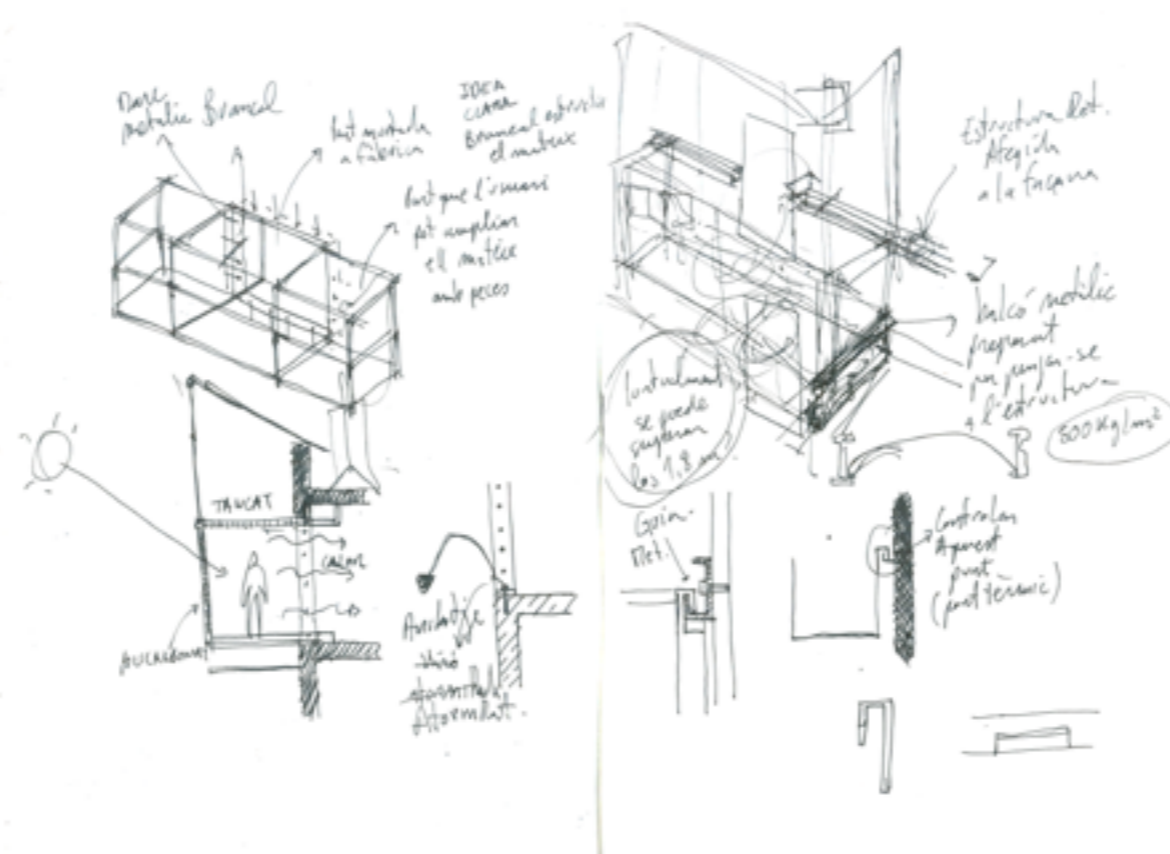 Marc
metàlic Brancal
Part muntada
a fàbrica
IDEA
CLARA
Brancal estructu
el mateix
Part que l'usuari
pot ampliar
ell mateix
amb peces
TANCAT
CALOR
Anclatje
Atornillat.
Estructura Met.
Afegida
a la façana
balcó metàlic
preparat
per penjar-se
a l'estructura
800 Kg/m²
se puede
superar
los 1,8 m
Guia
Met.
Controlar
Aquest
punt
(pont tèrmic)